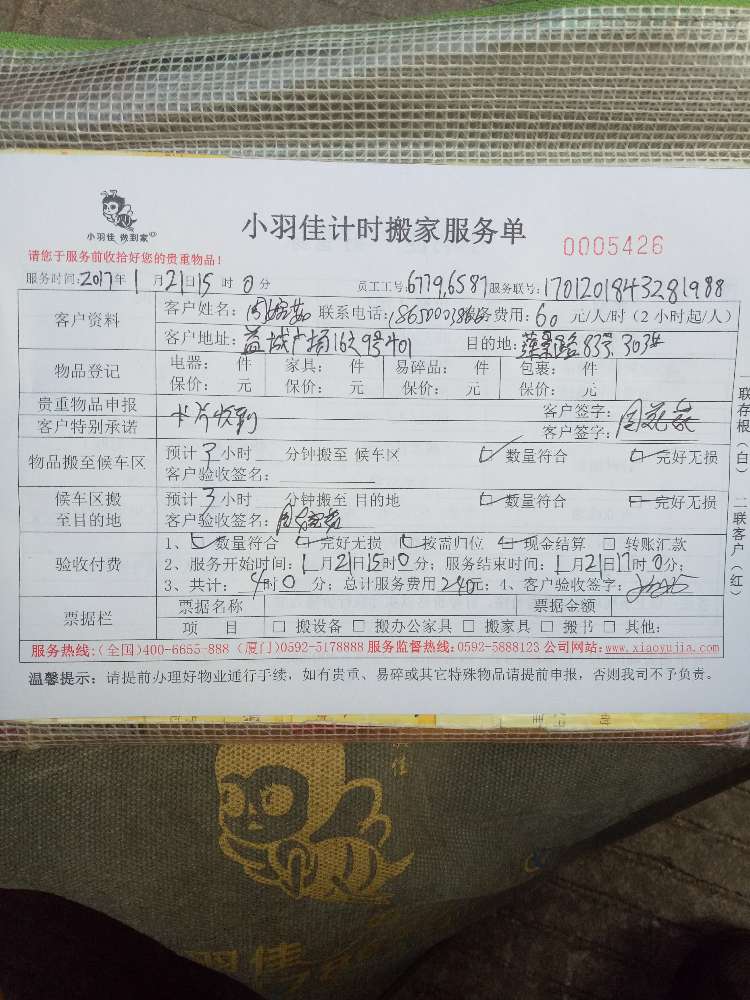 小羽佳 做到家
小羽佳计时搬家服务单
0005426
请您于服务前收拾好您的贵重物品!
服务时间:2017年1月21日15时0分 员工工号:6779,6587 服务联号:1701201843281988
客户资料
客户姓名: 联系电话: 服务费用:60元/人/时(2小时起/人)
客户地址:益城广场16之9号401 目的地: 83号303#
物品登记
电器: 件 家具: 件 易碎品: 件 包裹: 件
保价: 元 保价: 元 保价: 元 保价: 元
贵重物品申报 客户签字:
客户特别承诺 客户签字:
卡片收到
物品搬至候车区
预计 小时 分钟搬至 候车区 数量符合 完好无损
客户验收签名:
候车区搬至目的地
预计 小时 分钟搬至 目的地 数量符合 完好无损
客户验收签名:
验收付费
1、数量符合 完好无损 按需归位 现金结算 □ 转账汇款
2、服务开始时间:1月21日15时0分;服务结束时间:1月21日17时0分;
3、共计:4时0分;总计服务费用240元;4、客户验收签字:
票据栏
票据名称 票据金额
项 目 □ 搬设备 □ 搬办公家具 □ 搬家具 □ 搬书 □ 其他:
一联存根(白) 二联客户(红)
服务热线:(全国)400-6655-888 (厦门)0592-5178888 服务监督热线:0592-5888123 公司网站:www.xiaoyujia.com
温馨提示:请提前办理好物业通行手续,如有贵重、易碎或其它特殊物品请提前申报,否则我司不予负责。
羽佳